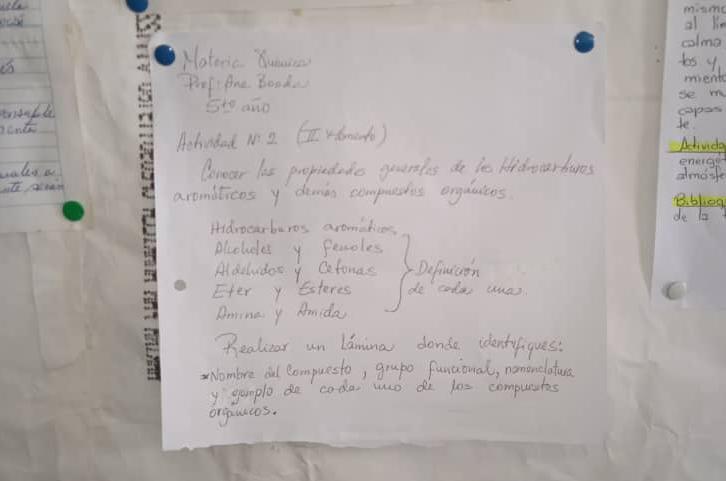 Materia Química
Prof: Ana Boada
5to año
Actividad Nº 2 (II Momento)
Conocer las propiedades generales de los Hidrocarburos
aromáticos y demás compuestos orgánicos.
Hidrocarburos aromáticos
Alcoholes y fenoles
Aldehidos y Cetonas
Eter y Esteres
Amina y Amida
Definición
de cada una.
Realizar un Lámina donde identifiques:
*Nombre del Compuesto, grupo funcional, nomenclatura
y ejemplo de cada uno de los compuestos
orgánicos.
mismo
al
calma
y
se m
capas
te.
Activida
energé
atmósfe
Bibliog
de la